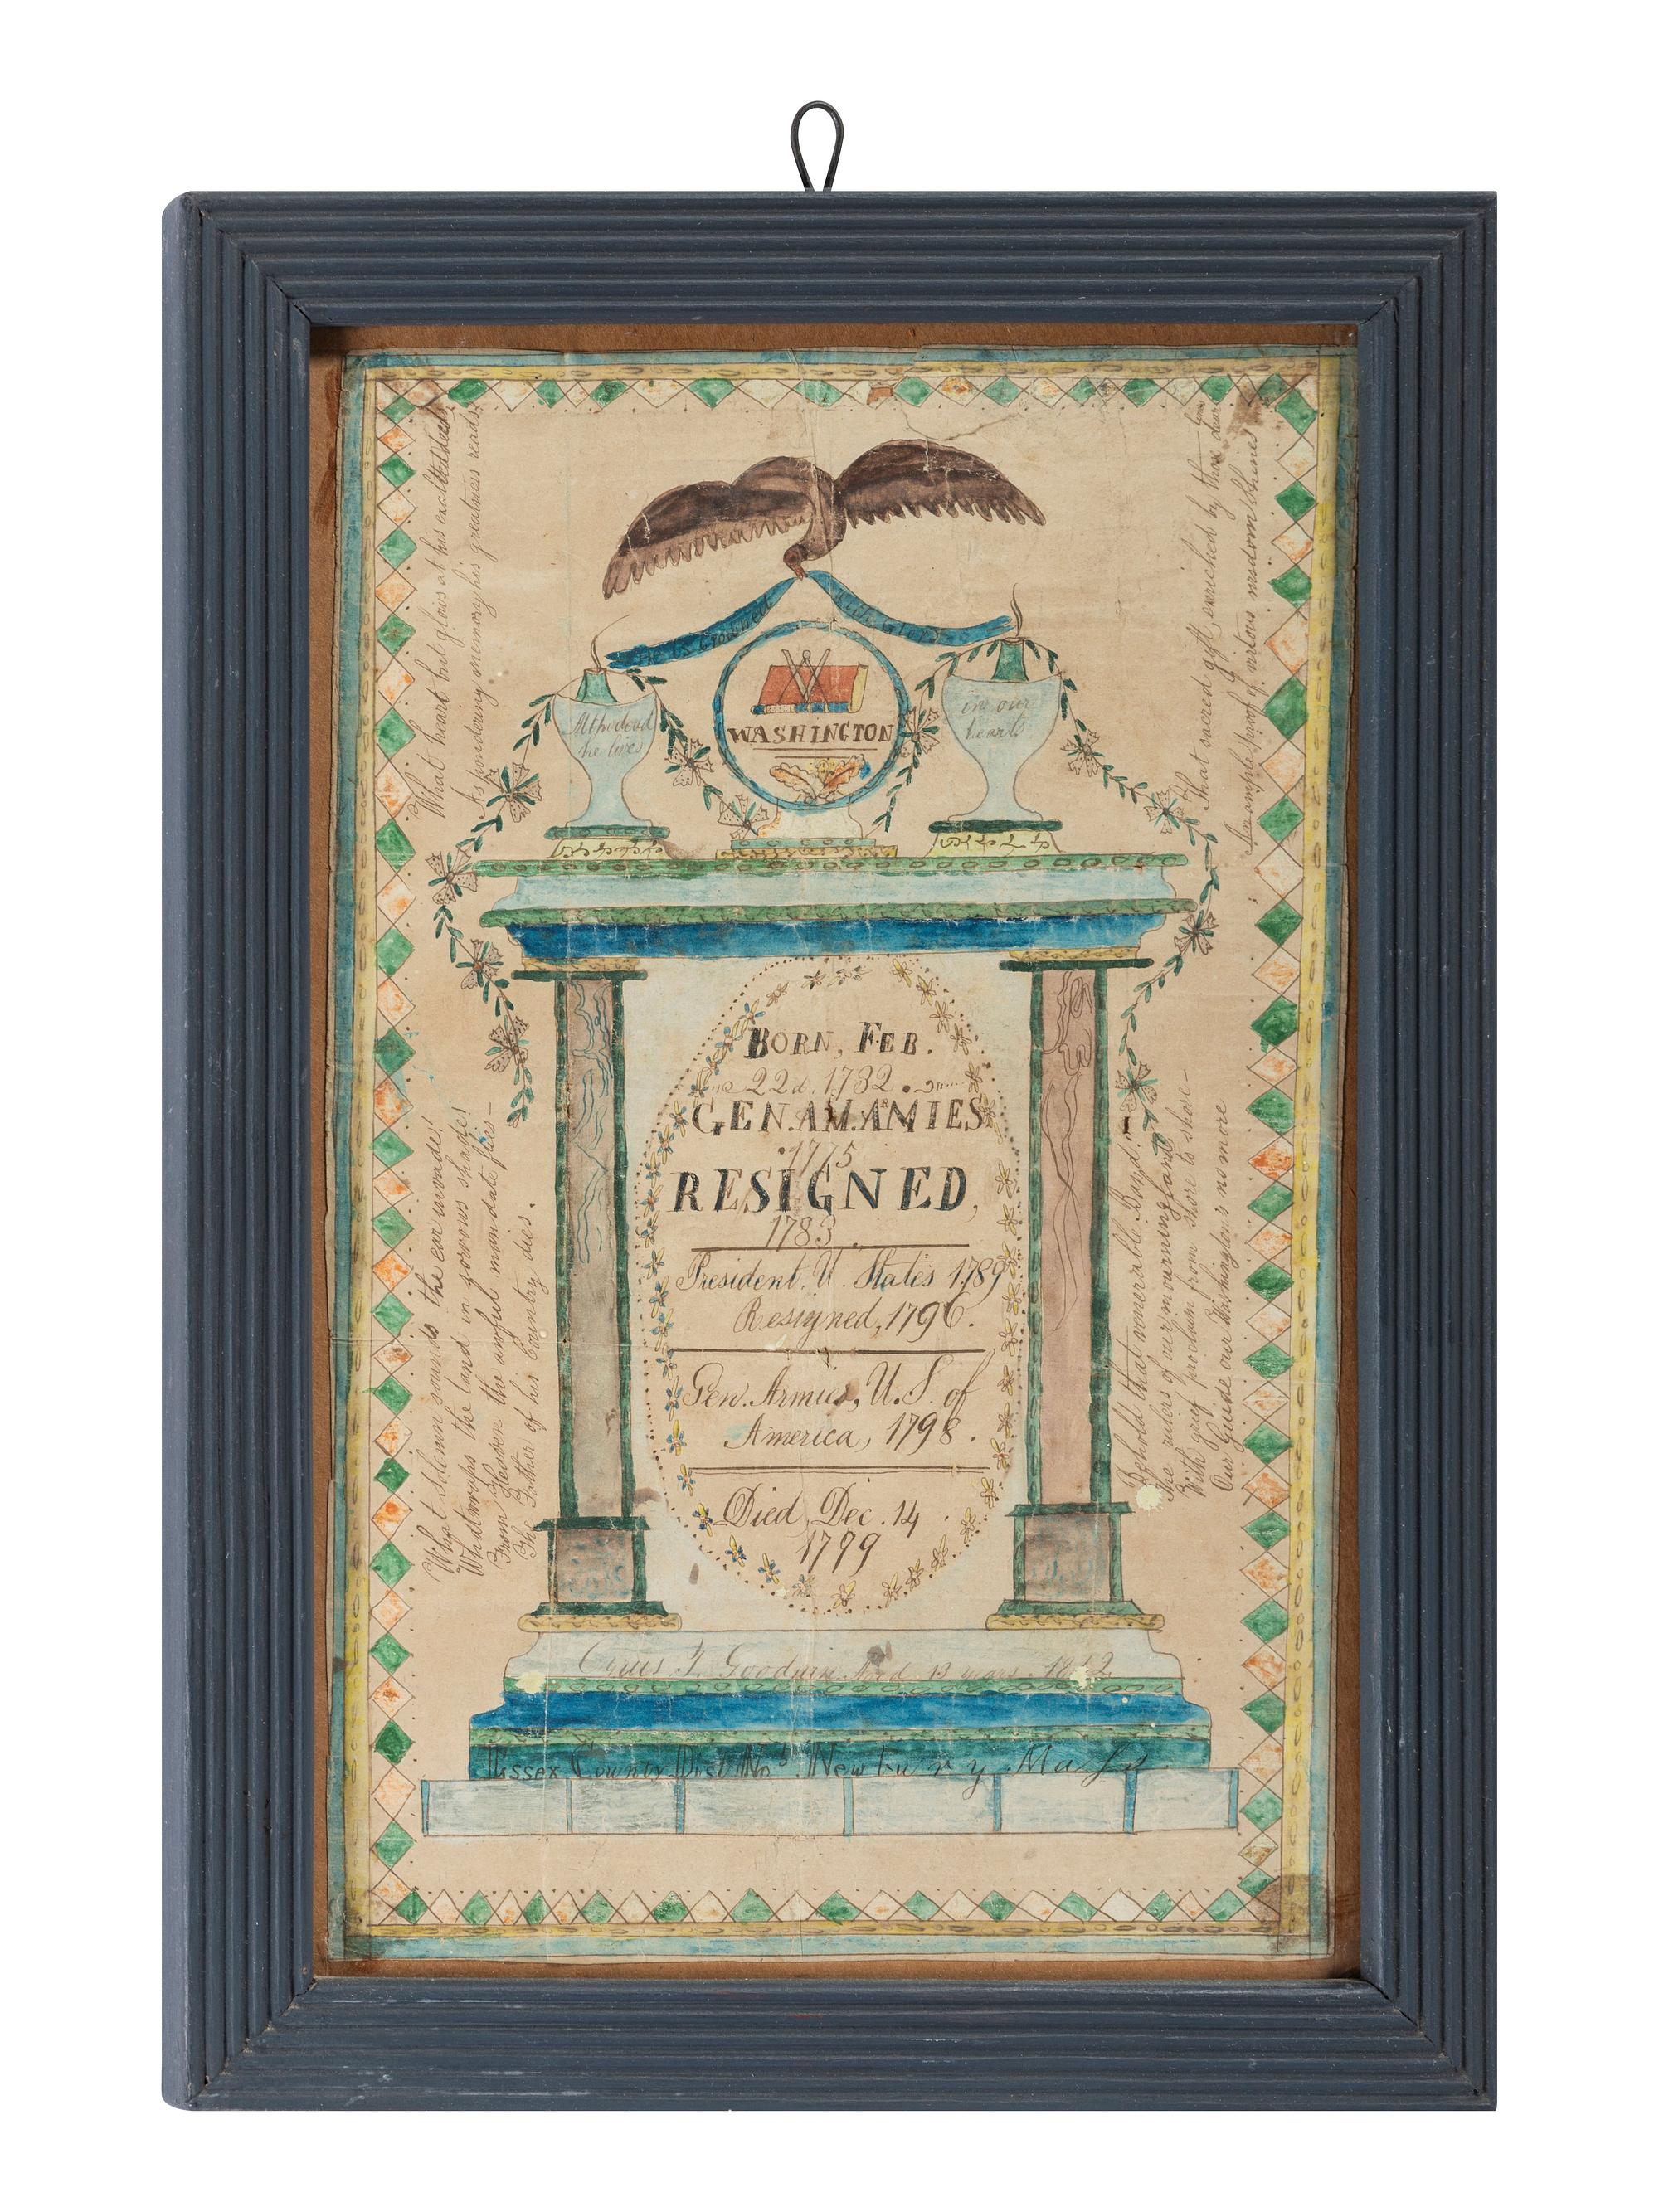 What heart but glows at his exalted
As pondering memory his greatness reads
That sacred gift, enriched by
of virtous wisdom shines
He is Crowned with Glory
Altho dead
he lives
WASHINGTON
in our
hearts
BORN, FEB.
22d. 1732.
GEN. AM. ARMIES
1775
RESIGNED,
1783.
President. U. States 1789
Resigned, 1796.
Gen. Armies, U. S. of
America, 1798.
Died, Dec. 14
1799
What solemn sounds the ear invade!
What wraps the land in sorrows shade!
From Heaven the awful mandate flies-
The Father of his Country dies.
Behold that venerable Band!
The rulers of our mourning land
With grief proclaim from shore to shore-
Our Guide our Washington's no more
Goodwin Aged 13 years. 1812.
Essex County Dist No Newbury Mass.